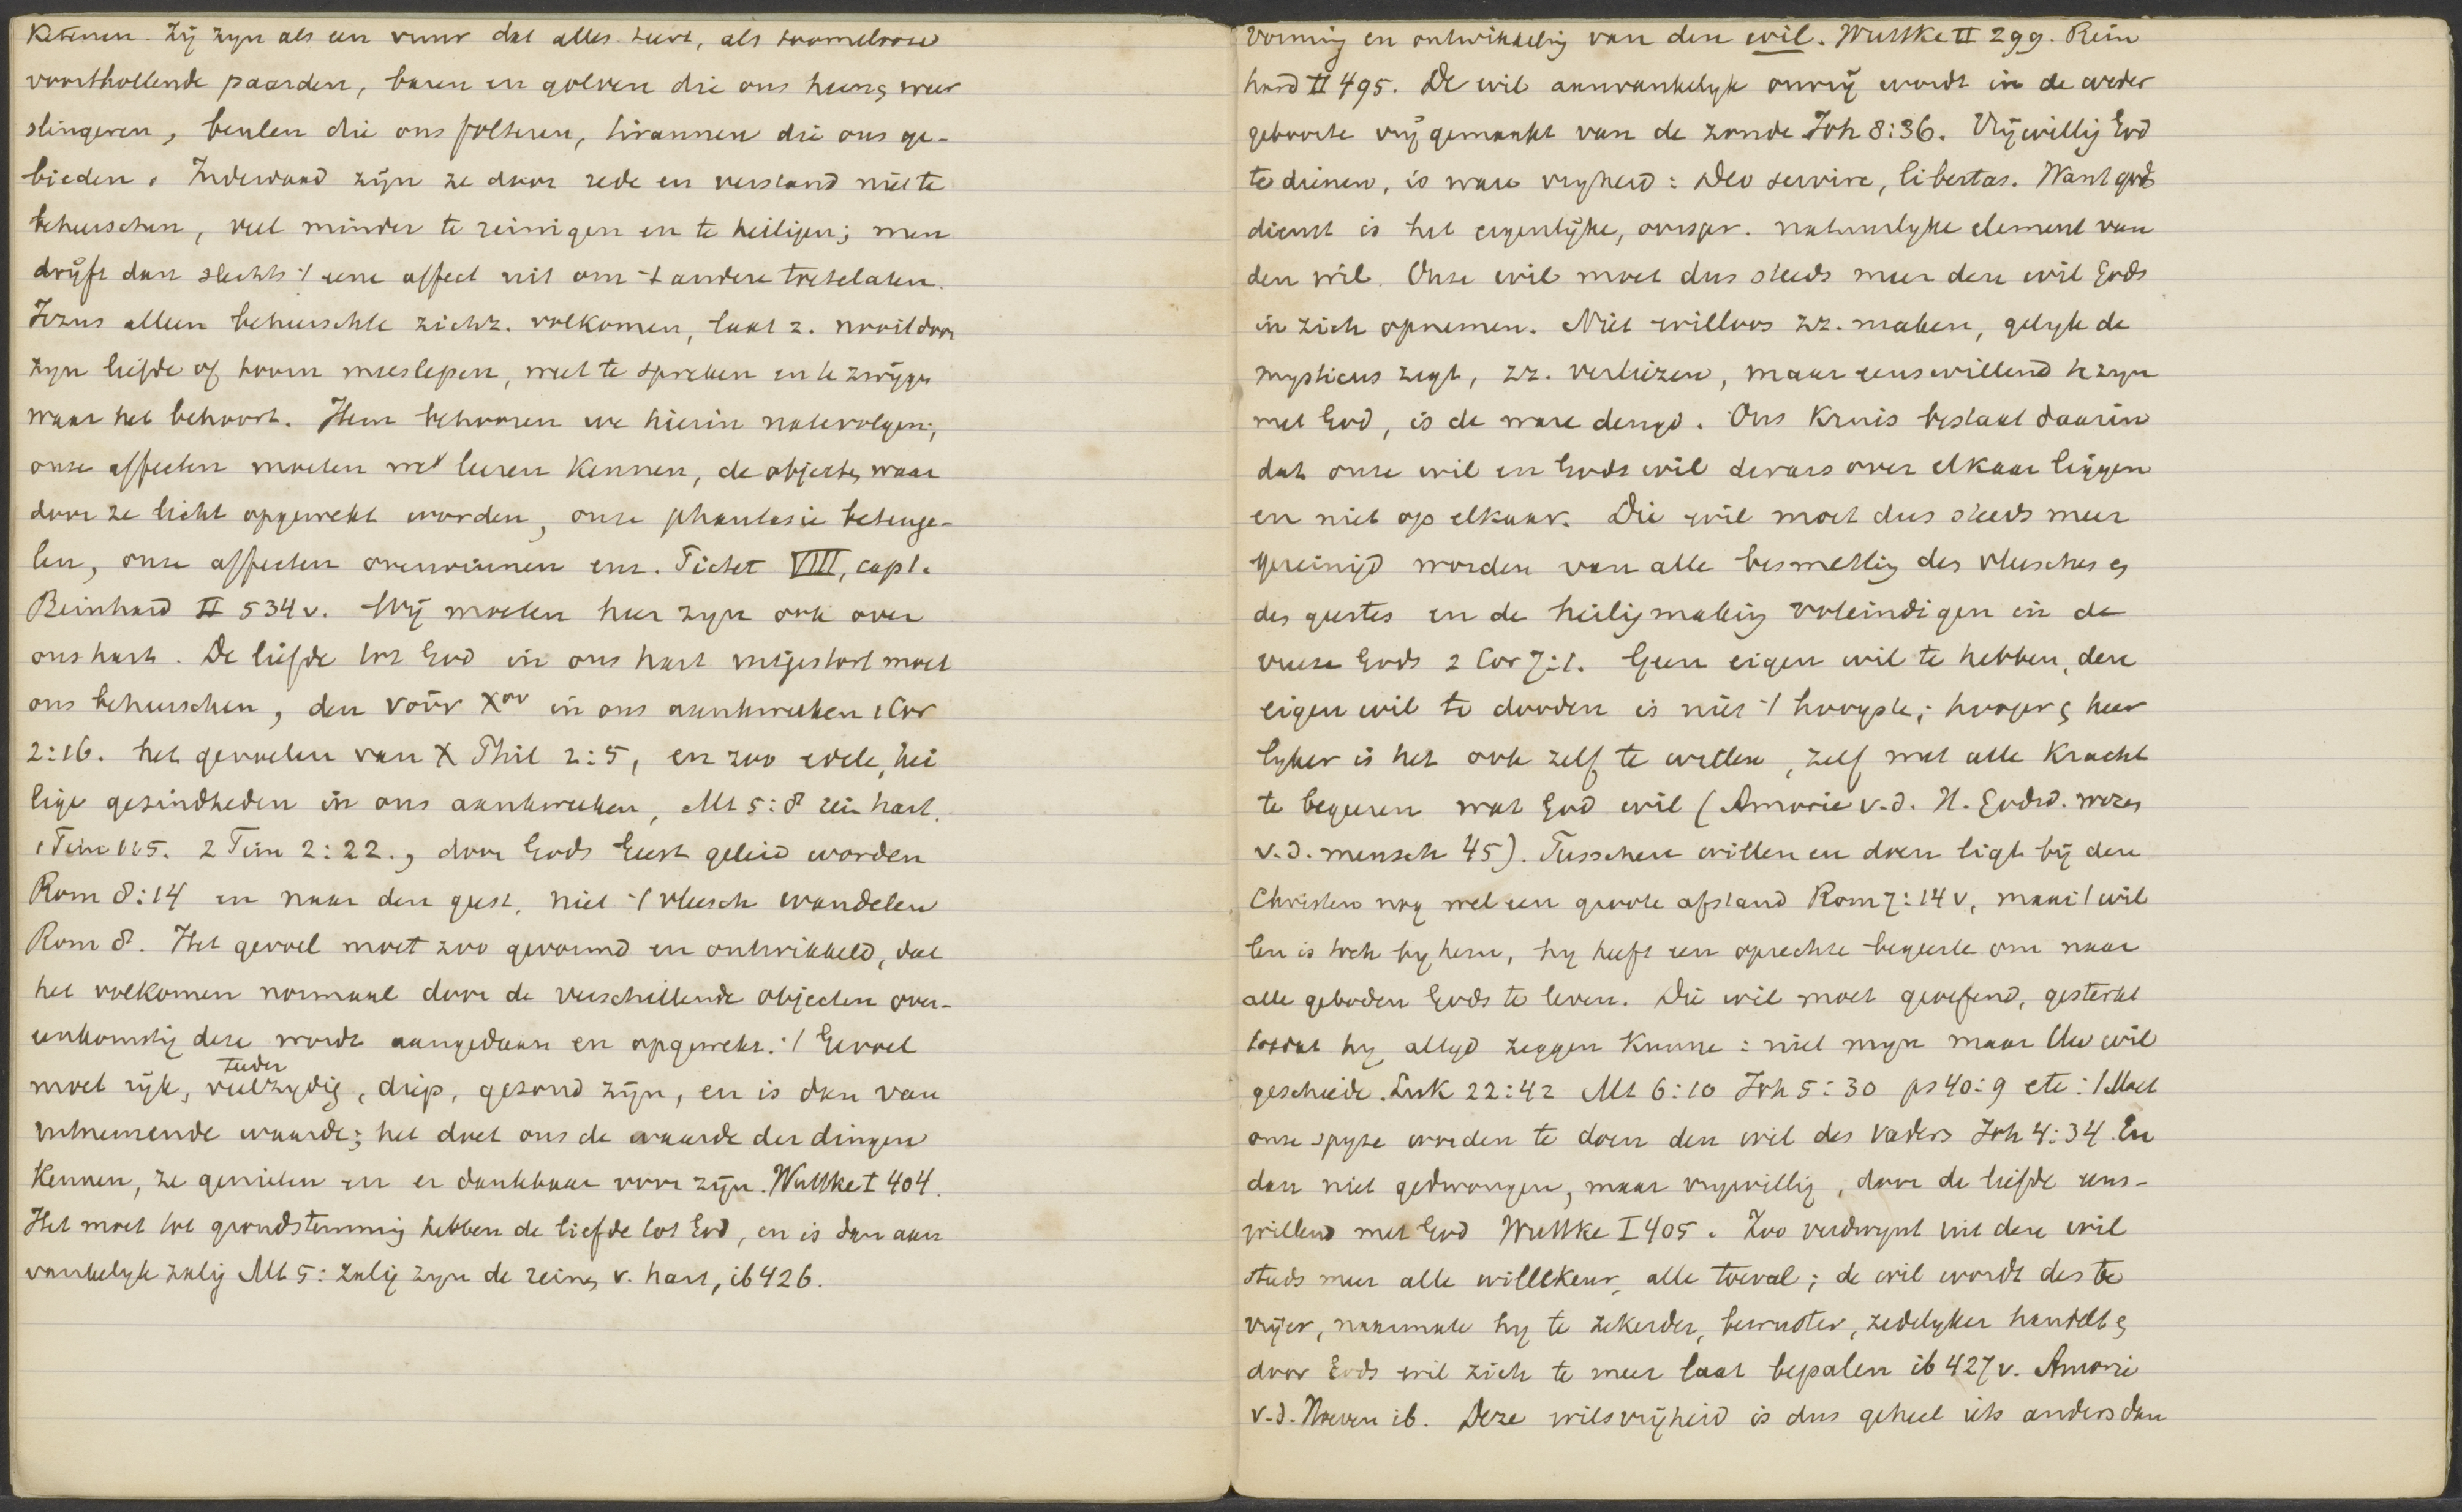 Ketenen. Zij zyn als een vuur dat alles teert, als toomelooze
voorthollende paarden, baren en golven die ons heen en weer
slingeren, beulen die ons folteren, tirannen die ons ge-
bieden. Inderdaad zijn ze door rede en verstand niet te
beheerschen, veel minder te reinigen en te heiligen; men
drijft dan slechts 't eene affect uit om 't andere toetelaten.
Jezus alleen beheerschte zichz. volkomen, laat z. nooit door
zyn liefde of toorn meeslepen, weet te spreken en te zwijgen
waar het behoort. Hem behooren we hierin natevolgen;
onze affecten moeten we leeren kennen, de objecten, waar
door ze licht opgewekt worden, onze phantasie beteuge-
len, onze affecten overwinnen enz. Pictet VIII, cap 1.
Reinhard II 534 v. Wij moeten heer zyn ook over
ons hart. De liefde tot God in ons hart uitgestort moet
ons beheerschen, den νοῦν Χου in ons aankweeken 1 Cor
2:16. het gevoelen van X Phil 2:5, en zoo edele, hei
lige gezindheden in ons aankweeken, Mt 5:8 rein hart.
1 Tim 1:5. 2 Tim 2:22., door Gods Geest geleid worden
Rom 8:14 en naar den geest, niet 't vleesch wandelen
Rom 8. Het gevoel moet zoo gevormd en ontwikkeld, dat
het volkomen normaal door de verschillende objecten over-
eenkomstig deze wordt aangedaan en opgewekt. 't Gevoel
teeder
moet rijk, veelzydig, diep, gezond zijn, en is dan van
uitnemende waarde; het doet ons de waarde der dingen
kennen, ze genieten en er dankbaar voor zijn. Wuttke I 404.
Het moet tot grondstemming hebben de liefde tot God, en is dan aan
vankelyk zalig Mt 5: zalig zyn de reinen v. hart, ib 426.
Vorming en ontwikkeling van den wil. Wuttke II 299. Rein
hard II 495. De wil aanvankelyk onvrij wordt in de weder
geboorte vrij gemaakt van de zonde Joh 8:36. Vrijwillig God
te dienen, is ware vryheid: Deo servire, libertas. Want gods
dienst is het eigenlijke, oorspr. natuurlyke element van
den wil. Onze wil moet dus steeds meer den wil Gods
in zich opnemen. Niet willoos zz. maken, gelyk de
mysticus zegt, zz. verliezen, maar eenswillend te zyn
met God, is de ware deugd. Ons Kruis bestaat daarin
dat onze wil en Gods wil dwars over elkaar liggen
en niet op elkaar. Die wil moet dus steeds meer
gereinigd worden van alle besmetting des vleesches en
des geestes en de heiligmaking voleindigen in de
vreeze Gods 2 Cor 7:1. Geen eigen wil te hebben, den
eigen wil te dooden is niet 't hoogste; hooger en heer
lyker is het ook zelf te willen, zelf met alle kracht
te begeeren wat God wil (Amorie v.d. H. Godsd. wezen
v.d. mensch 45). Tusschen willen en doen ligt bij den
Christen nog wel een groote afstand Rom 7:14 v, maar 't wil
len is toch by hem, hy heeft een oprechte begeerte om naar
alle geboden Gods te leven. Die wil moet geoefend, gesterkt
totdat hy altyd zeggen kunne: niet myn maar Uw wil
geschiede. Luk 22:42 Mt 6:10 Joh 5:30 ps 40:9 etc: 't Moet
onze spyze worden te doen den wil des Vaders Joh 4:34. En
dan niet gedwongen, maar vrywillig, door de liefde eens-
willend met God Wuttke I 405. Zoo verdwynt uit den wil
steeds meer alle willekeur, alle toeval; de wil wordt des te
vrijer, naarmate hy te zekerder, bewuster, zedelyker handelt en
door Gods wil zich te meer laat bepalen ib 427 v. Amorie
v.d. Hoeven ib. Deze wilsvrijheid is dus geheel iets anders dan